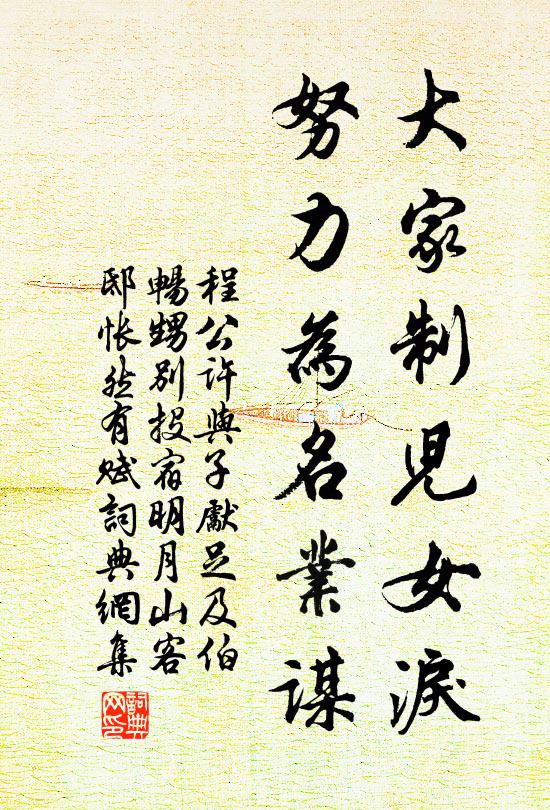 大家制児女淚
努力為名業謀
程公許與子獻足及伯
暢甥別投宿明月山客
邸悵然有賦詞典網集
詞典网印